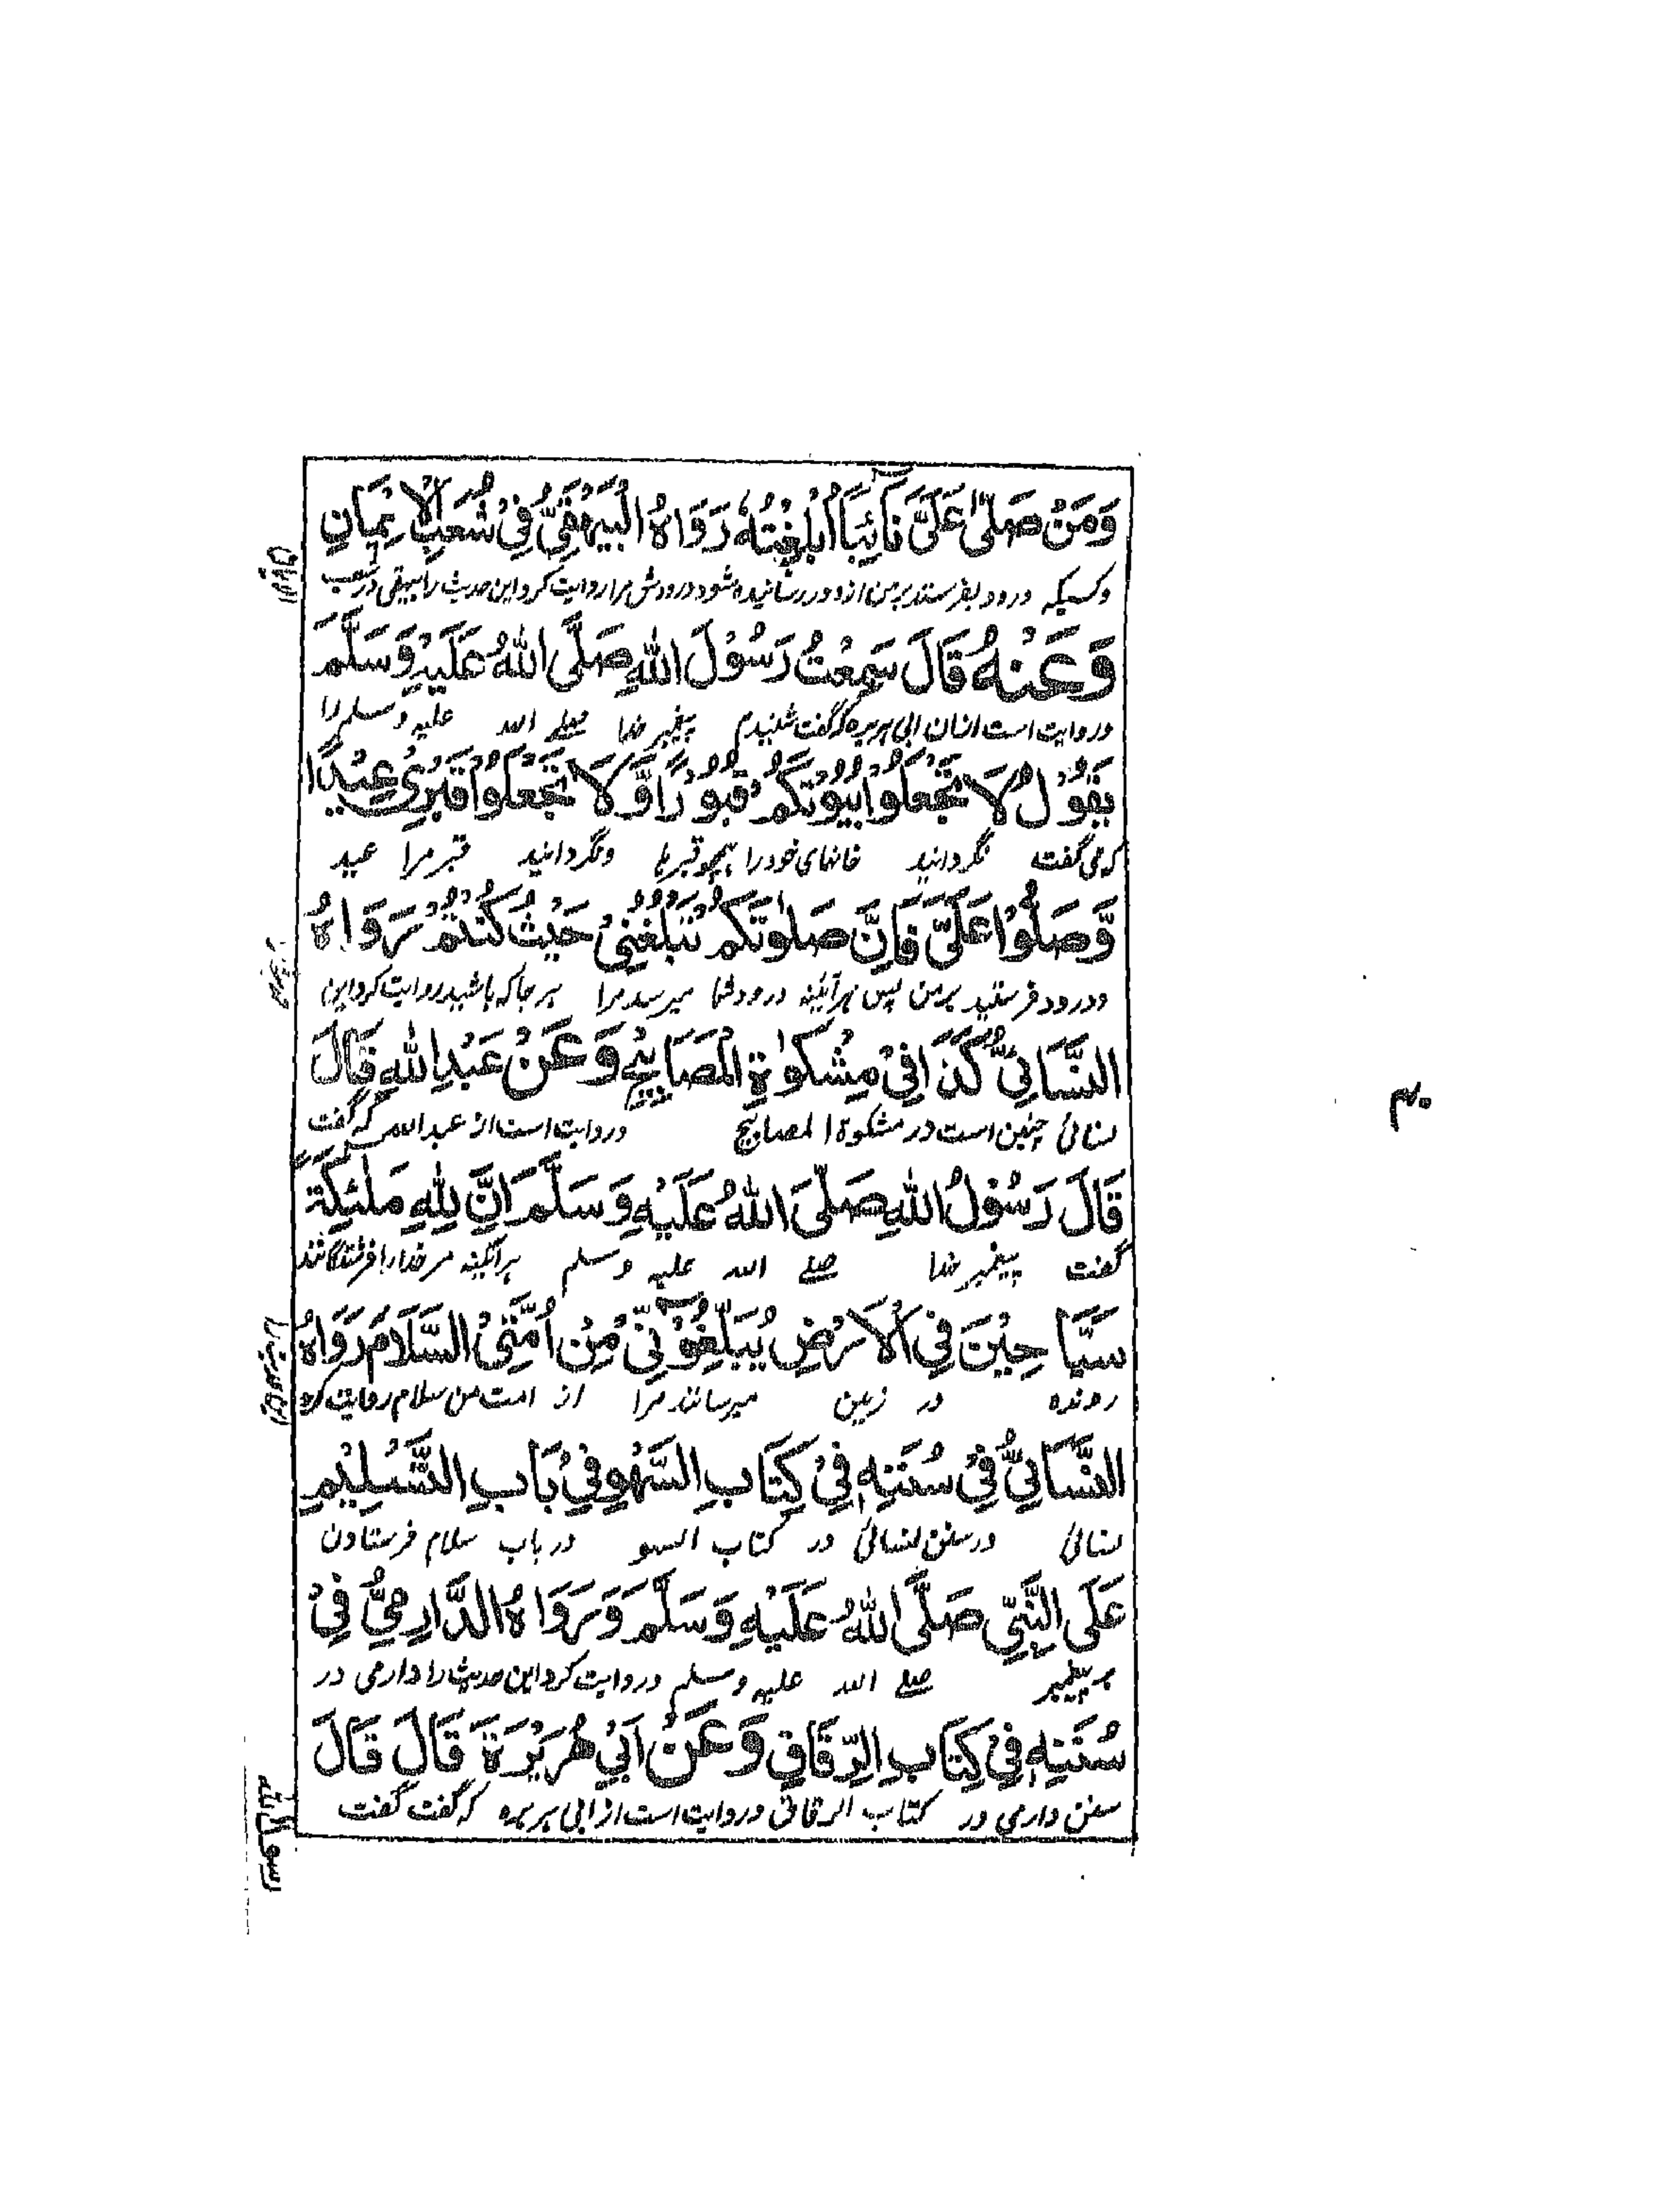 وَمَنْ صَلّٰى عَلَيَّ نَائِيًا اُبْلِغْتُهُ رَوَاهُ الْبَيْهَقِيُّ فِيْ شُعَبِ الْاِيْمَانِ
وکسیکه درود بفرستد بر من از دور رسانیده شود درودش مرا روایت کرد این حدیث را بیهقی در شعب
وَعَنْهُ قَالَ سَمِعْتُ رَسُوْلَ اللهِ صَلَّى اللهُ عَلَيْهِ وَسَلَّمَ
و روایت است ازان ابی هریره که گفت شنیدم پیغمبر خدا صلے الله علیه وسلم را
يَقُوْلُ لَا تَجْعَلُوْا بُيُوْتَكُمْ قُبُوْرًا وَّ لَا تَجْعَلُوْا قَبْرِيْ عِيْدًا
که می گفت نگردانید خانهای خود را همچو قبرها ونگردانید قبر مرا عید
وَّصَلُّوْا عَلَيَّ فَاِنَّ صَلٰوتَكُمْ تَبْلُغُنِيْ حَيْثُ كُنْتُمْ رَوَاهُ
ودرود فرستید بر من پس هرآئینه درود شما میرسد مرا هر جا که باشید روایت کرد این
النَّسَائِيُّ كَذَا فِيْ مِشْكٰوةِ الْمَصَابِيْحِ وَعَنْ عَبْدِ اللهِ قَالَ
نسائی چنین است در مشکوة المصابیح و روایت است از عبد الله که گفت
قَالَ رَسُوْلُ اللهِ صَلَّى اللهُ عَلَيْهِ وَسَلَّمَ اِنَّ لِلّٰهِ مَلٰئِكَةً
گفت پیغمبر خدا صلے الله علیه وسلم هرآئینه مر خدا را فرشتگانند
سَيَّاحِيْنَ فِي الْاَرْضِ يُبَلِّغُوْنِّيْ مِنْ اُمَّتِيْ السَّلَامَ رَوَاهُ
رونده در زمین میرسانند مرا از امت من سلام روایت کرد
النَّسَائِيُّ فِيْ سُنَنِهٖ فِيْ كِتَابِ السَّهْوِ فِيْ بَابِ التَّسْلِيْمِ
نسائی در سنن نسائی در کتاب السهو در باب سلام فرستادن
عَلَى النَّبِيِّ صَلَّى اللهُ عَلَيْهِ وَسَلَّمَ وَرَوَاهُ الدَّارِمِيُّ فِيْ
بر پیغمبر صلے الله علیه وسلم و روایت کرد این حدیث را دارمی در
سُنَنِهٖ فِيْ كِتَابِ الرِّقَاقِ وَعَنْ اَبِيْ هُرَيْرَةَ قَالَ قَالَ
سنن دارمی در کتاب الرقاق و روایت است از ابی هریره که گفت گفت
رسول الله